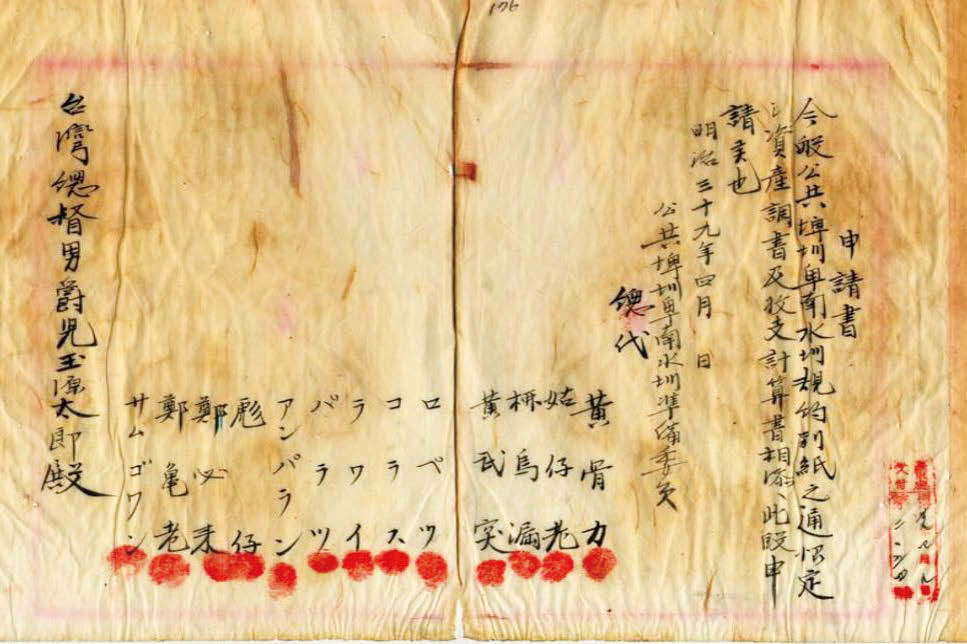 176
申請書
今般公共埤圳卑南水圳規約別紙之通相定
資產調書及收支計算書相添ヘ此段申
請候也
明治三十九年四月 日
公共埤圳卑南水圳準備委員
總代
黃骨力
姑仔老
烏漏
黃武突
ロペツ
コラス
ラワイ
バラツ
アンパラン
彪仔
鄭必来
鄭亀老
サムゴワン
台灣總督男爵児玉源太郎殿